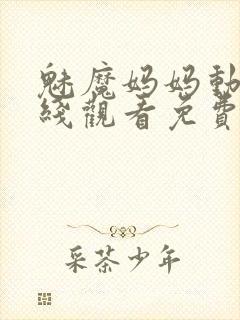 魅魔妈妈動
綫觀看免費
采茶少年